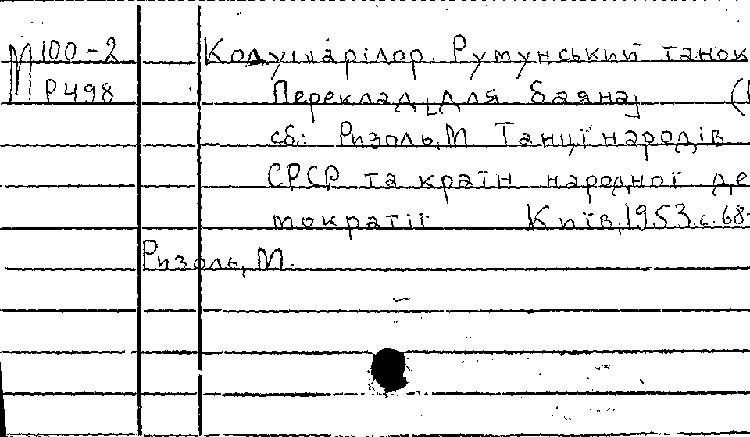 М 100-2 Кодушарілор. Румунський танок
Р498 Переклад [для баяна] (
сб: Ризоль, М Танці народів
СРСР та країн народної де
мократії Київ, 1953. с. 68-
Ризоль, М.